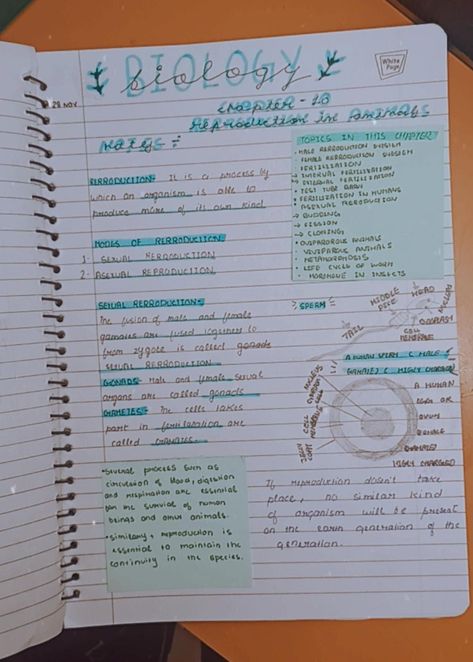 BIOLOGY
biology
White Page
29 NOV
Chapter - 13
Reproduction in animals
Notes :
TOPICS IN THIS CHAPTER
• MALE REPRODUCTION SYSTEM
• FEMALE REPRODUCTION SYSTEM
• FERTILIZATION
→ INTERNAL FERTILIZATION
→ EXTERNAL FERTILIZATION
• TEST TUBE BABY
• FERTILIZATION IN HUMANS
• ASEXUAL REPRODUCTION
→ BUDDING
→ FISSION
→ CLONING
• OVIPAROROUS ANIMALS
• VIVIPAROUS ANIMALS
• METAMORPHOSIS
• LIFE CYCLE OF WORM
• HORMONUE IN INSECTS
REPRODUCTION: It is a process by
which an organism is able to
produce more of its own kind
MODES OF REPRODUCTION
1- SEXUAL REPRODUCTION
2- ASEXUAL REPRODUCTION
SEXUAL REPRODUCTION:
The fusion of male and female
gametes are fused together to
from zygote is called gonads
SEXUAL REPRODUCTION
GONADS: Male and female sexual
organs are called gonads
GAMETES: The cells takes
part in fertilization are
called GAMATES.
SPERM
TAIL
MIDDLE PIECE
HEAD
NUCLEUS
CYTOPLASM
CELL MEMBRANE
A HUMAN SPERM ( MALE
GAMATE) ( HIGLY CHARGED)
NUCLEUS
CELL MEMBRANE
JELLY COAT
A HUMAN
EGG OR
OVUM
(FEMALE
GAMATE)
HIGLY CHARGED
•Several process such as
circulation of blood, digestion
and respiration are essential
for the survival of human
beings and other animals.
•Similarly, reproduction is
essential to maintain the
continuity in the species.
If reproduction doesn't take
place, no similar kind
of organism will be present
on the earth generation of the
generation.